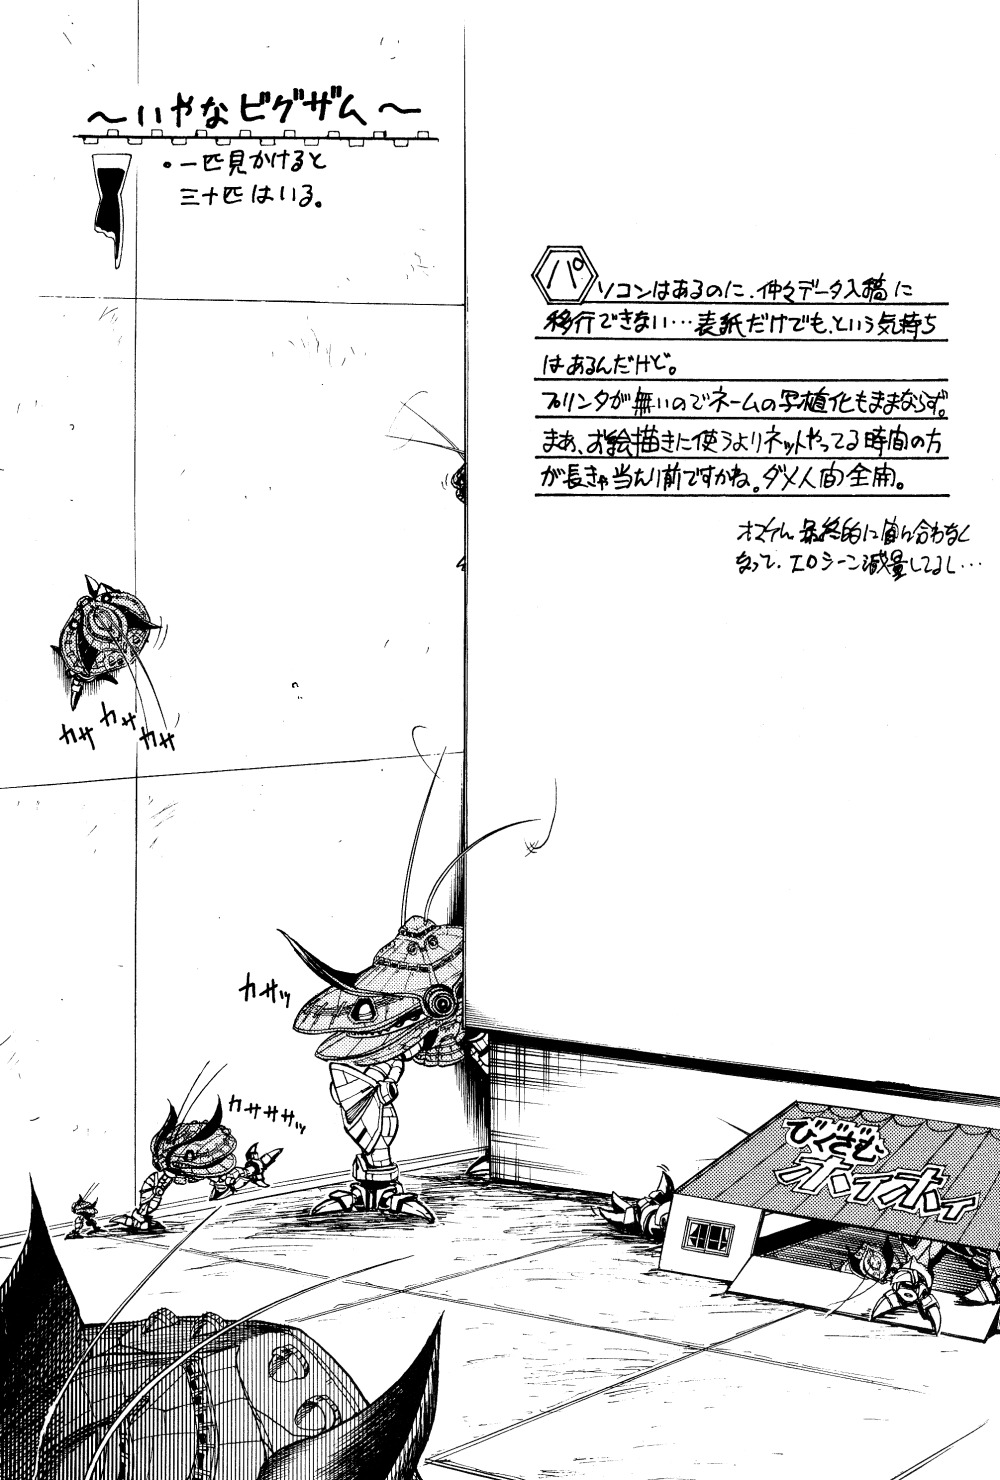 ～いやなビグザム～
・一匹見かけると
三十匹はいる。
パソコンはあるのに、仲々データ入稿に
移行できない…表紙だけでも、という気持ち
はあるんだけど。
プリンタが無いのでネームの写植化もままならず。
まあ、お絵描きに使うよりネットやってる時間の方
が長きゃ当たり前ですかね。ダメ人間全開。
オマケに最終的に間に合わなく
なって、エロシーン減量してるし…
カサ
カサ
カサ
カサッ
カサササッ
びぐざむ
ホイホイ